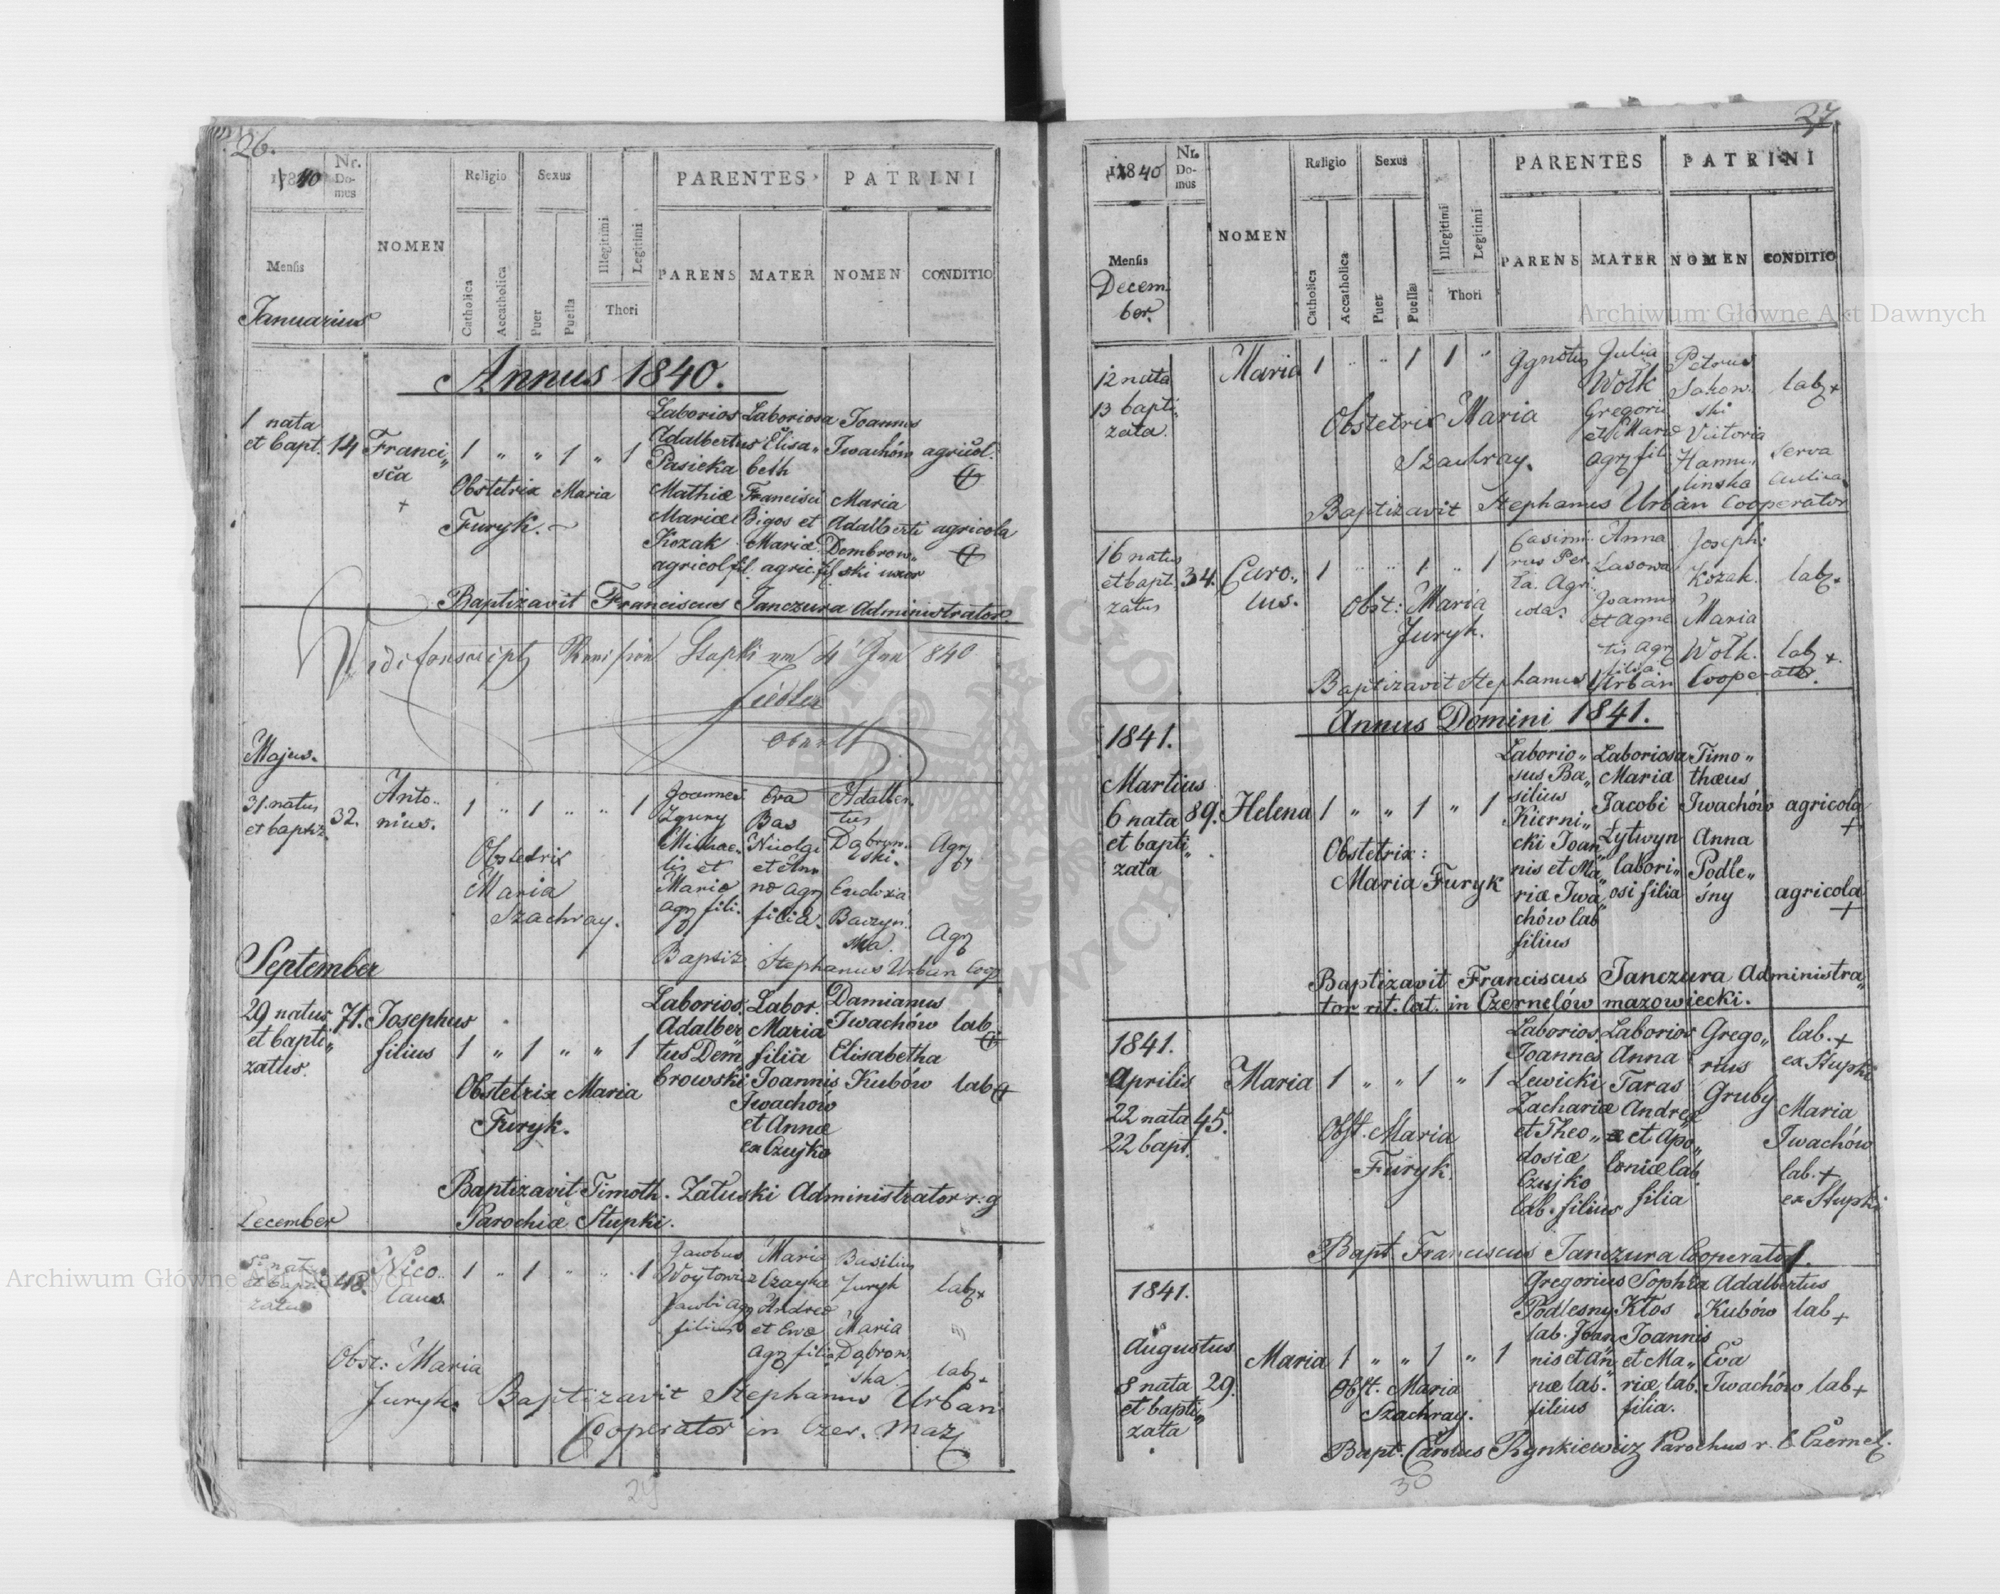 26.
1840
Nr. Do- mus
NOMEN
Religio
Sexus
PARENTES
PATRINI
Mensis
Januarius
Catholica
Accatholica
Puer
Puella
Illegitimi
Legitimi
Thori
PARENS
MATER
NOMEN
CONDITIO
Annus 1840.
1 nata
et bapt. 14
Franci„
sca
+
1 „ „ 1 „ 1
Obstetrix Maria
Furyk.
Laborios
Adalbertus
Pasieka
Mathiæ
Mariæ
Kozak
agricol fil.
Laboriosa
Elisa„
beth
Francisci
Bigos et
Mariæ
agric. fil
Joannes
Iwachów agricol.
Maria
Adalberti agricola
Dombrow„
ski uxor
Baptizavit Franciscus Janczura Administrator
Stupki am 4 840
Fiedler
Majus.
31. natus
et baptiz. 32.
Anto„
nius.
1 „ 1 „ „ 1
Obstetrix
Maria
Szachray.
Joannes
Michae„
lis et
Mariæ
agr fili.
Eva
Bas
Nicolai
et An
næ agr
filia.
Adalber
tus
Dąbrow„
ski.
Eudoxia
Baczyń„
ska.
Agr
Agr
Baptiz. Stephanus Urban Coop
September
29 natus 71.
et bapti„
zatus.
Josephus
filius 1 „ 1 „ „ 1
Obstetrix Maria
Furyk.
Laborios.
Adalber
tus Dem
browski
Labor.
Maria
filia
Joannis
Iwachów
et Annæ
ex Czujko
Damianus
Iwachów lab
Elisabetha
Kubów lab
Baptizavit Timoth. Załuski Administrator r. g
Parochiæ Stupki.
December
5 natus
et bapti
zatus 48.
Nico„
laus
1 „ 1 „ „ 1
Obst: Maria
Furyk.
Jacobus
Woytowicz
Jacobi Agr
filius
Maria
Czayka
Andreæ
et Evæ
Agr filia
Basilius
Furyk labr
Maria
Dąbrow
ska labr
Baptizavit Stephanus Urban
Cooperator in Czer. Maz
29
27
1840
Nr. Do- mus
NOMEN
Religio
Sexus
PARENTES
PATRINI
Mensis
Decem
ber.
Catholica
Accatholica
Puer
Puella
Illegitimi
Legitimi
Thori
PARENS
MATER
NOMEN
CONDITIO
12 nata
13 bapti„
zata.
Maria 1 „ „ 1 1 „
Obstetrix Maria
Szachray.
Ignotus
Julia
Wołk
Gregorii
et Mariæ
agr fil
Petrus
Sakow„
ski labr +
Victoria
Hamu„
linska
serva
Baptizavit Stephanus Urban Cooperator
16 natus
et bapti„ 34.
zatus
Caro„
lus.
1 „ 1 „ 1
Obst: Maria
Furyk.
Casimi„
rus Per
ta. Agri„
cola.
Anna
Lasowa
Joannis
et Agne
tis agr
filia
Joseph:
Kozak. labr +
Maria
Wołk. labr +.
Baptizavit Stephanus Urban Cooperator.
Annus Domini 1841.
1841.
Martius
6 nata 89.
et bapti„
zata
Helena 1 „ „ 1 „ 1
Obstetrix:
Maria Furyk
Laborio„
sus Ba„
silius
Kierni„
cki Joan
nis et Ma„
riæ Iwa„
chów lab
filius
Laboriosa
Maria
Jacobi
Łytwyn
labori„
osi filia
Timo„
thæus
Iwachów agricola
+
Anna
Podle„
śny agricola
+
Baptizavit Franciscus Janczura Administra„
tor rit. lat. in Czernelów mazowiecki.
1841.
Aprilis
22 nata 45.
22 bapt.
Maria 1 „ „ 1 „ 1
Obst. Maria
Furyk.
Laborios
Joannes
Lewicki
Zachariæ
et Theo„
dosiæ
Czujko
lab. filius
Laborios
Anna
Taras
Andreæ
et Apo„
loniæ lab.
filia
Grego„
rius
Gruby
lab. +
ex Stupki
Maria
Iwachów
lab. +
ex Stupki
Bapt. Franciscus Janczura Cooperator.
1841.
Augustus
8 nata 29.
et bapti„
zata
Maria 1 „ „ 1 „ 1
Obst. Maria
Szachray.
Gregorius
Podlesny
lab. Joan
nis et An
næ lab.
filius
Sophia
Kłos
Joannis
et Ma„
riæ lab.
filia.
Adalbertus
Kubów lab +
Eva
Iwachów lab +
Bapt. Carolus Rynkiewicz Parochus r. l. Czernel.
30
Archiwum Główne Akt Dawnych
Archiwum Główne Akt Dawnych